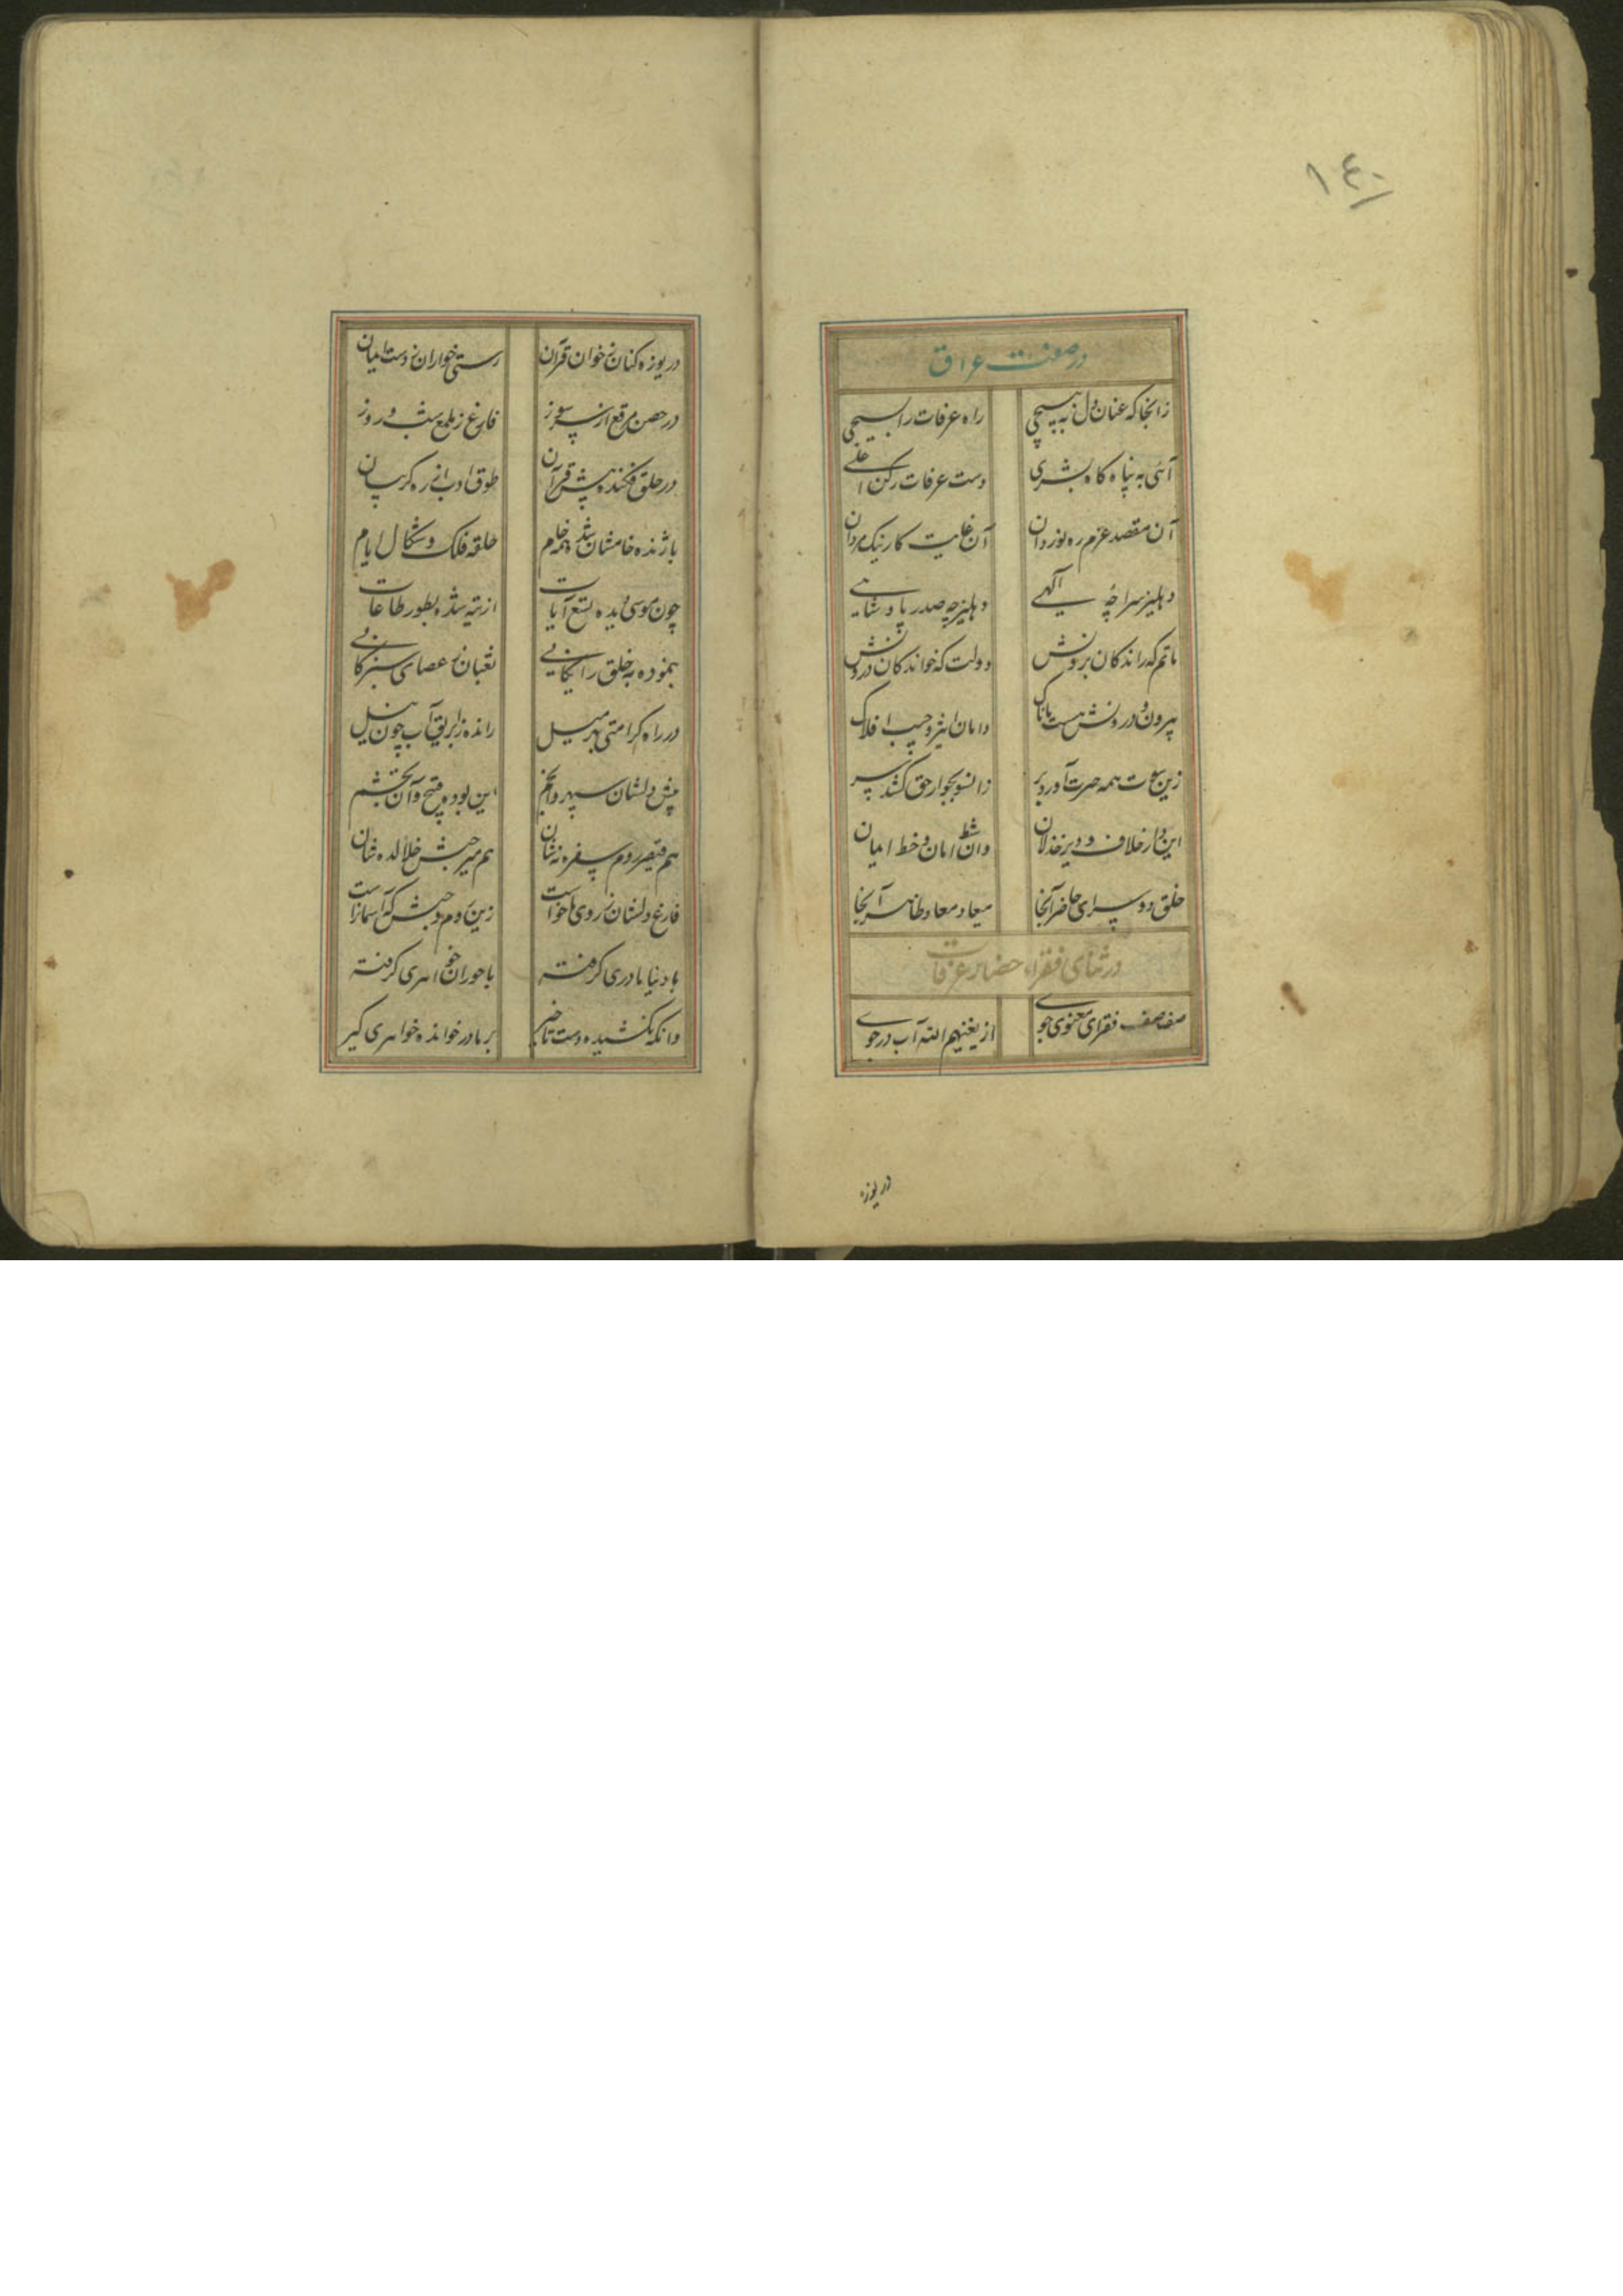 ١٤٠
در صفت عراق
زانجا که عنان دل بپیچی راه عرفات را بسیچی
آئی به پناه کاه بشری دست عرفات رکن اعلی
آن مقصد عزم ره نوردان آن غایت کار نیک مردان
دهلیز سراچه آلهی دهلیزچه صدر پادشاهی
ماتم که راندکان برونش دولت که خواندکان درونش
بیرون و درونش هست پاک دامان اثیر و جیب افلاک
زین سوت همه حسرت آورد بر زانسو بجوار حق کشد سر
این دار خلاف و دیر خذلان وان شط امان و خط ایمان
خلق دو سرای حاضر آنجا میعاد معاد ظاهر آنجا
در ثنای فقراء حضار عرفات
صفاصف فقرای معنوی جوی از یغنیهم الله آب در جوی
دریوزه
دریوزه کنان ز خوان قرآن رستی خواران ز دست ایمان
در حصن مرقع از پس روز فارغ ز ملمع شب و روز
در حلق فکنده پیش قرآن طوق ادب از ره کریبان
با ژنده خامشان شده خام حلقه فلک و شکال ایام
چون موسی دیده تسع آیات از تیه شده بطور طاعات
بنموده به خلق رایکانی ثعبان ز عصای سبز کانی
در راه کرامتی بهر میل رانده ز ابریق آب چون نیل
پیش دلشان سپهر و انجم این بوده وقح و آن تجشم
هم قیصر روم سفره نه شان هم میر حبش خلال ده شان
فارغ دلشان ز روی ماخواست زین روم و حبش که آسمانراست
با دنیا مادری کرفته با حوران خواهری کرفته
وانکه نکشیده دست تاخیر بر مادر خوانده خواهری کیر